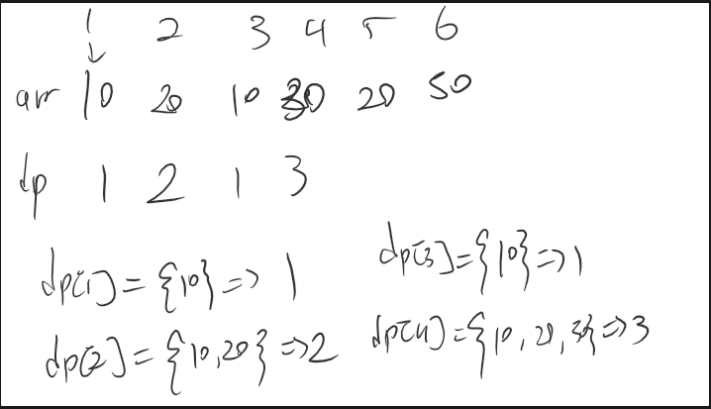 1 2 3 4 5 6
arr 10 20 10 30 20 50
dp 1 2 1 3
dp[1] = {10} => 1
dp[3] = {10} => 1
dp[2] = {10, 20} => 2
dp[4] = {10, 20, 30} => 3